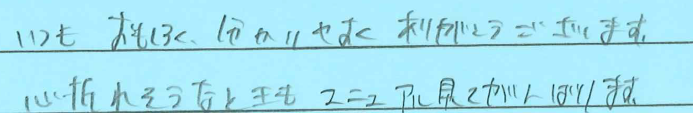 いつも おもしろく、分かりやすく ありがとうございます。
心折れそうなときも マニュアル見てがんばります。